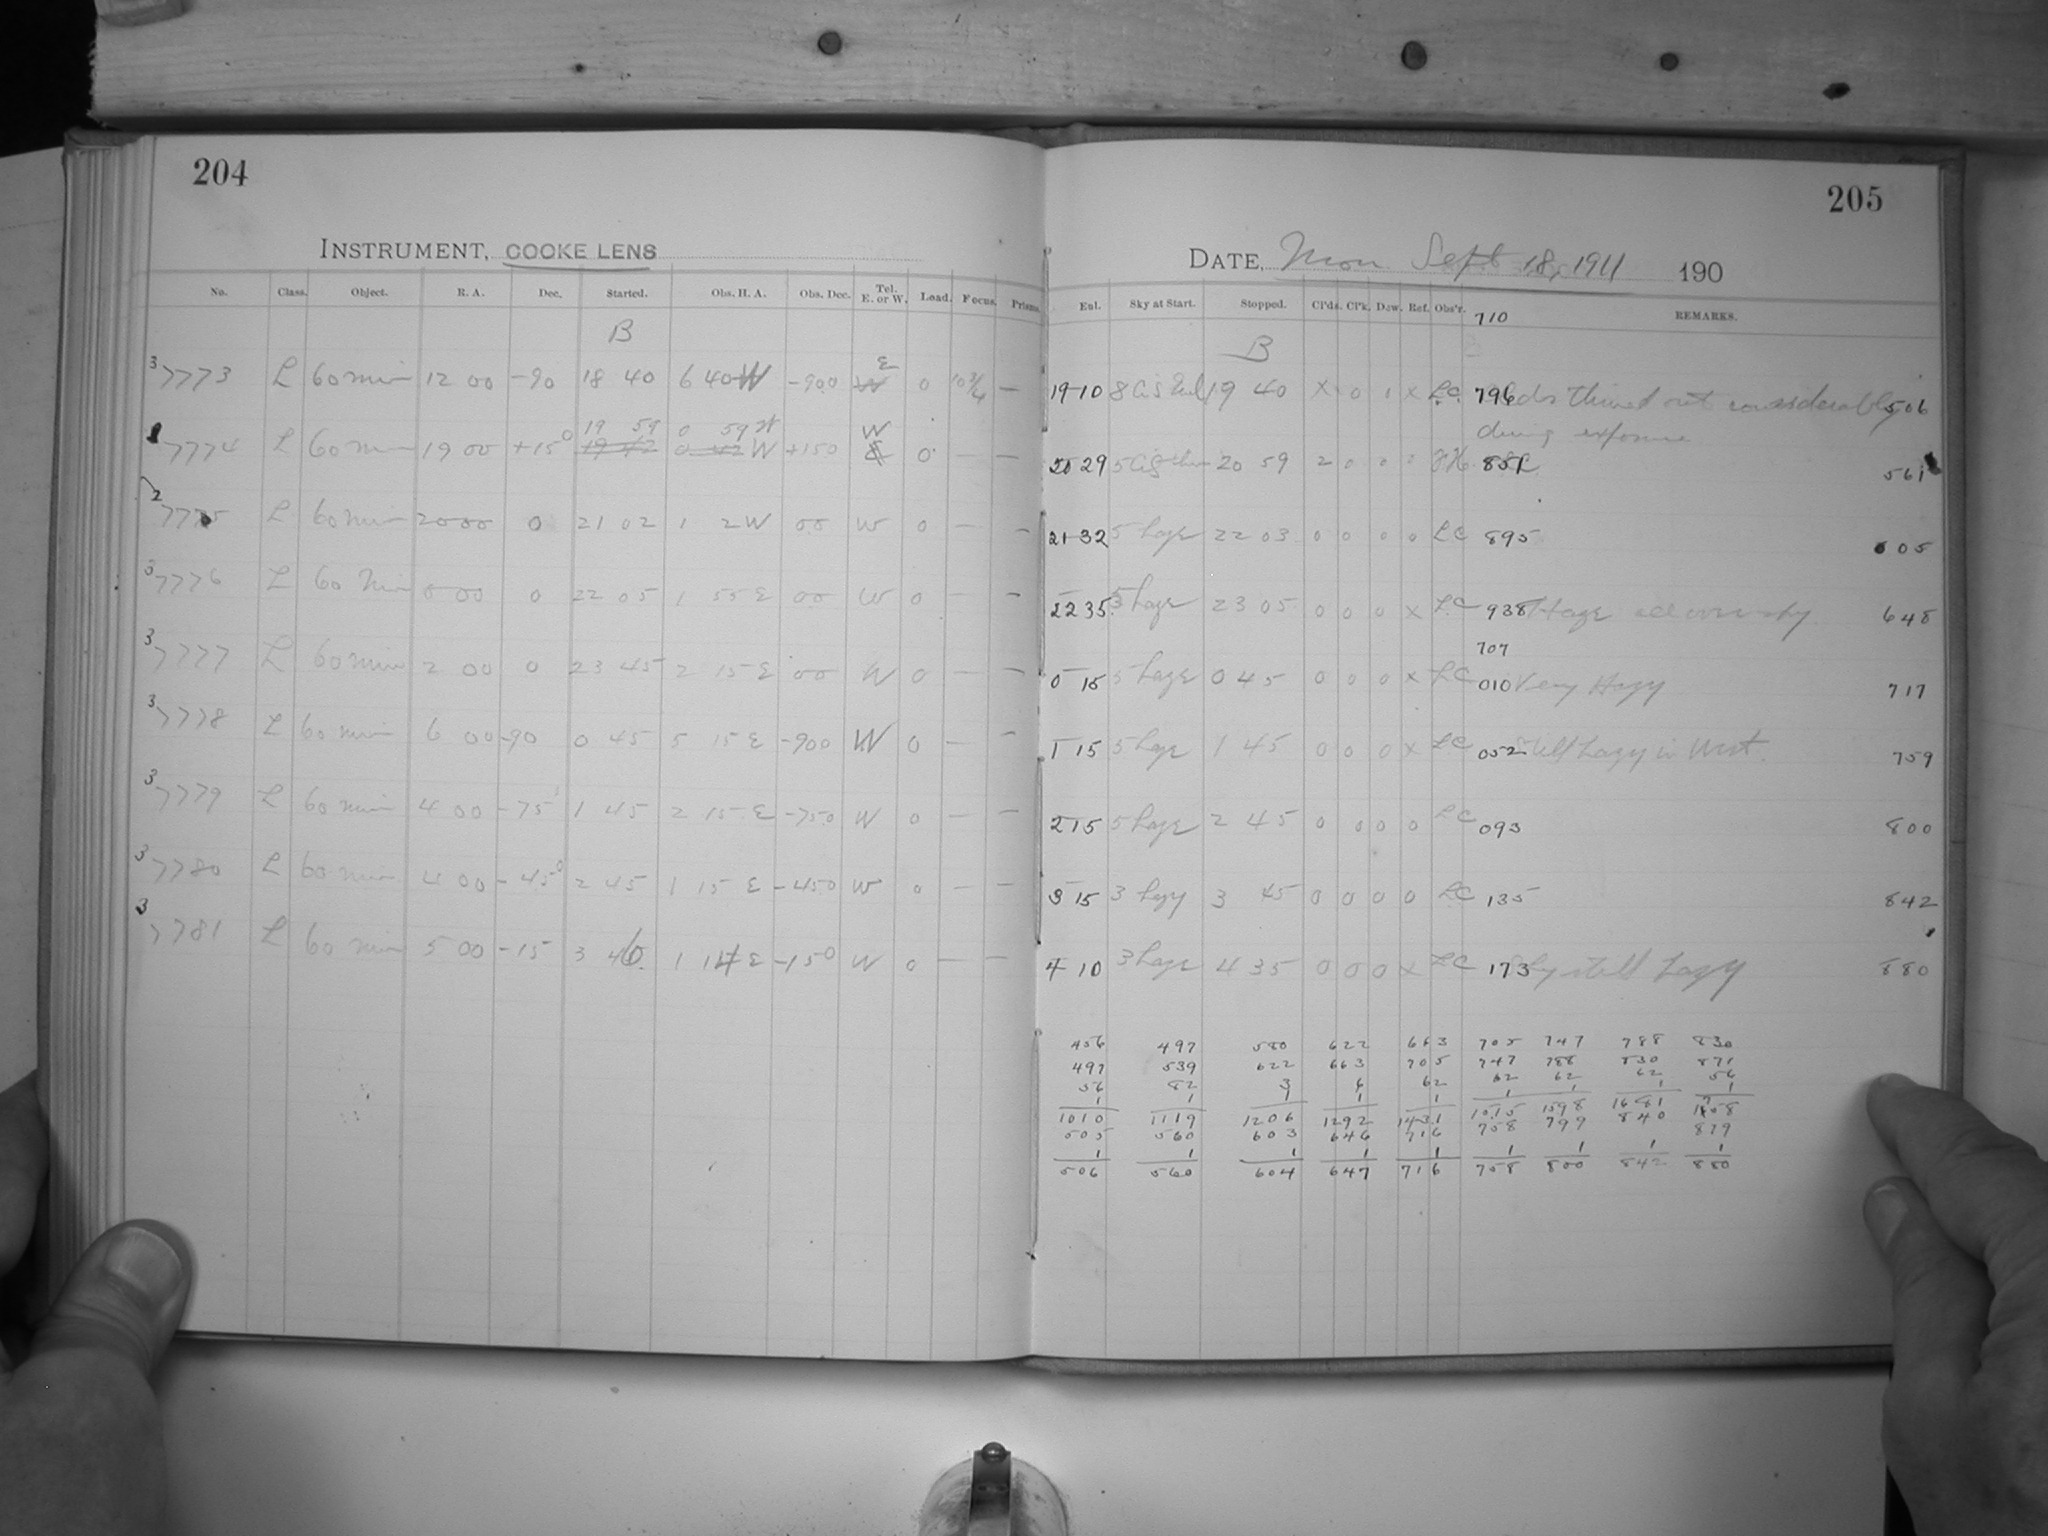 204
INSTRUMENT, COOKE LENS
No. Class. Object. R. A. Dec. Started. Obs. H. A. Obs. Dec. Tel. E. or W. Load. Focus. Prisms.
B
3 7773 L 60 min 12 00 -90 18 40 6 40 W -900 E W 0 10 3/4 —
19 59 0 59 W
7774 L 60 min 19 00 +15° 19 42 0 42 W +150 E 0 — —
2 7775 L 60 min 20 00 0 21 02 1 2 W 00 W 0 — —
3 7776 L 60 Min 0 00 0 22 05 1 55 E 00 W 0 — —
3 7777 L 60 min 2 00 0 23 45 2 15 E 00 W 0 — —
3 7778 L 60 min 6 00 -90 0 45 5 15 E -900 W 0 — —
3 7779 L 60 min 4 00 -75 1 45 2 15 E -750 W 0 — —
3 7780 L 60 min 4 00 -45° 2 45 1 15 E -450 W 0 — —
3 7781 L 60 min 5 00 -15 3 46 1 14 E -150 W 0 — —
205
DATE, Mon Sept 18, 1911 190
Enl. Sky at Start. Stopped. Cl'ds. Cl'k. Dew. Ref. Obs'r. 710 REMARKS.
B
19 10 8 19 40 x 0 1 x LC 796 thinned out considerably 506
during exposure
20 29 5 20 59 2 0 0 851 561
21 32 5 haze 22 03 0 0 0 0 LC 895 605
22 35 5 haze 23 05 0 0 0 x LC 938 Haze all over sky 648
707
0 15 5 haze 0 45 0 0 0 x LC 010 Very Hazy 717
1 15 5 haze 1 45 0 0 0 x LC 052 still hazy in West. 759
2 15 5 haze 2 45 0 0 0 0 LC 093 800
3 15 3 hazy 3 45 0 0 0 0 LC 135 842
4 10 3 haze 4 35 0 0 0 x LC 173 Sky still hazy 880
456 497 580 622 663 705 747 788 830
497 539 622 663 705 747 788 830 871
56 82 3 6 62 62 62 62 56
1 1 1 1 1 1 1 1
1010 1119 1206 1292 1431 1515 1598 1681
505 560 603 646 716 758 799 840 879
1 1 1 1 1 1 1 1 1
506 560 604 647 716 758 800 842 880